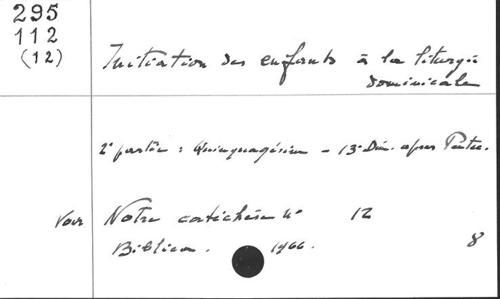 295
112
(12)
Initiation des enfants à la liturgie
dominicale
2e partie : Quinquagésime - 13e Dim. après Pentec.
Voir Notre catéchèse no 12
Biblica. 1966.
8